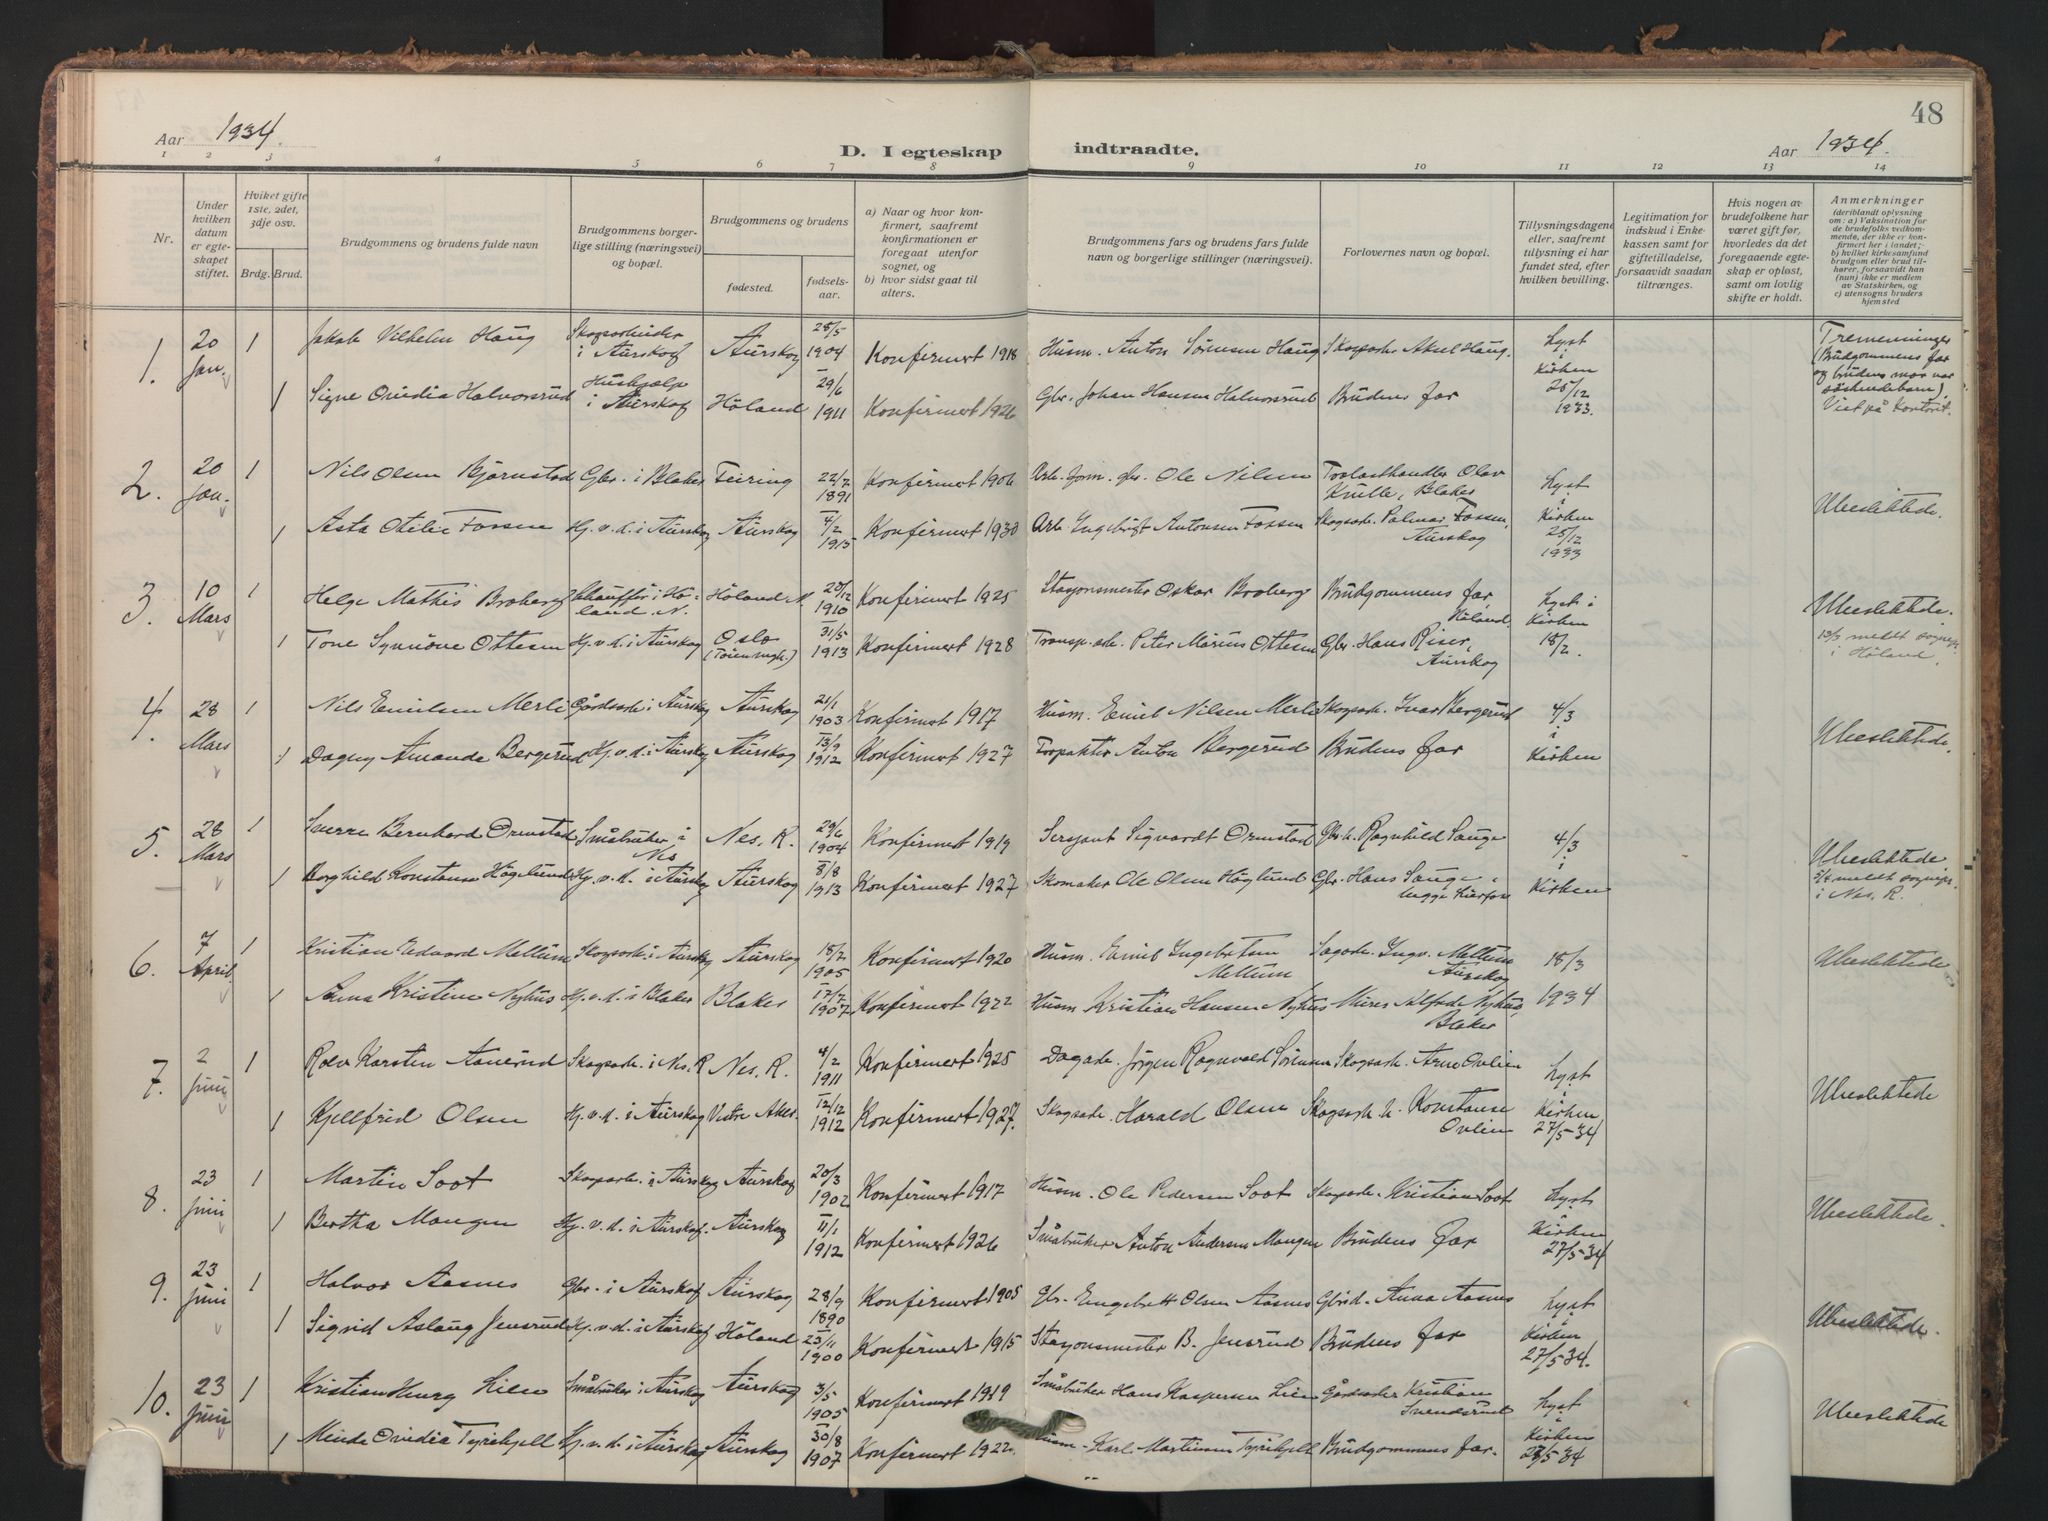 48
Aar 1934.
D. I egteskap indtraadte.
Aar 1934.
1 2 3 4 5 6 7 8 9 10 11 12 13 14
Nr.
Under hvilken datum er egteskapet stiftet.
Hviket gifte 1ste, 2det, 3dje osv.
Brdg. Brud.
Brudgommens og brudens fulde navn
Brudgommens borgerlige stilling (næringsvei) og bopæl.
Brudgommens og brudens
fødested.
fødselsaar.
a) Naar og hvor konfirmert, saafremt konfirmationen er foregaat utenfor sognet, og
b) hvor sidst gaat til alters.
Brudgommens fars og brudens fars fulde navn og borgerlige stillinger (næringsvei).
Forlovernes navn og bopæl.
Tillysningsdagene eller, saafremt tillysning ei har fundet sted, efter hvilken bevilling.
Legitimation for indskud i Enkekassen samt for giftetilladelse, forsaavidt saadan tiltrænges.
Hvis nogen av brudefolkene har været gift før, hvorledes da det foregaaende egteskap er opløst, samt om lovlig skifte er holdt.
Anmerkninger (deriblandt oplysning om: a) Vaksination for de brudefolks vedkommende, der ikke er konfirmert her i landet; b) hvilket kirkesamfund brudgom eller brud tilhører, forsaavidt han (hun) ikke er medlem av Statskirken, og c) utensogns bruders hjemsted
1. 20 Jan. 1 Jakob Vilhelm Haug Skogsarbeider i Aurskog Aurskog 28/5 1904 Konfirmert 1918 Husm. Anton Sørensen Haug Skogsarb. Aksel Haug. Lyst i Kirken 25/12 1933. Tremenninger (Brudgommens far og brudens mor var søskendebarn). Vist på kontoret.
1 Signe Ovidia Halvorsrud Hushjelp i Aurskog Höland 29/6 1911 Konfirmert 1926 Gbr. Johan Hansen Halvorsrud Brudens far
2. 20 Jan. 1 Nils Olsen Bjørnstad Gbr. i Blaker Feiring 22/2 1891 Konfirmert 1906 Arb. Ole Nilsen Trelasthandler Olav Blaker Lyst i Kirken 25/12 1933 Ubeslektede.
1 Asta Otelie Fossen Hj.v.d. i Aurskog Aurskog 4/2 1915 Konfirmert 1930 Arb. Ingebrigt Antonsen Fossen Skogsarb. Palmar Fossen, Aurskog
3. 10 Mars 1 Helge Mathis Broberg Chauffør i Höland N. Höland N. 28/12 1910 Konfirmert 1925 Stasjonsmester Oskar Broberg Brudgommens far, Höland. Lyst i Kirken 18/2. Ubeslektede. 13/3 meldt sognepr. i Höland.
1 Tone Synnöve Ottesen Hj.v.d. i Aurskog Oslo 31/5 1913 Konfirmert 1928 Transp. arb. Peter Marius Ottesen Gbr. Hans Riser, Aurskog
4. 28 Mars 1 Nils Emilsen Merli Gårdsarb. i Aurskog Aurskog 21/1 1903 Konfirmert 1917 Husm. Emil Nilsen Merli Skogsarb. Ivar Bergerud 4/3 i Kirken Ubeslektede.
1 Dagny Amanda Bergerud Hj.v.d. i Aurskog Aurskog 13/9 1912 Konfirmert 1927 Forpakter Anton Bergerud Brudens far
5. 28 Mars 1 Sverre Bernhard Ormstad Småbruker i Nes Nes, R. 29/6 1904 Konfirmert 1919 Sersjant Sigvardt Ormstad Gbr.h. Ragnhild Lauge 4/3 i Kirken Ubeslektede 5/4 meldt sognepr. i Nes, R.
1 Borghild Konstanse Höglund Hj.v.d. i Aurskog Aurskog 8/8 1913 Konfirmert 1927 Skomaker Ole Olsen Höglund Gbr. Hans Lauge
6. 7 April 1 Kristian Edvard Mellum Skogsarb. i Aurskog Aurskog 18/2 1905 Konfirmert 1920 Husm. Emil Ingebretsen Mellum Sagarb. Ingv. Mellum Aurskog 18/3 1934 Ubeslektede
1 Anna Kristine Nyhus Hj.v.d. i Blaker Blaker 17/7 1907 Konfirmert 1922 Husm. Kristian Hansen Nyhus Murer Alfred Nyhus, Blaker
7. 2 Juni 1 Rolv Karsten Aanerud Skogsarb. i Nes, R Nes, R. 4/2 1911 Konfirmert 1925 Dagarb. Jörgen Ragnvald Sörensen Skogsarb. Arne Ovlien Lyst i Kirken 27/5-34 Ubeslektede
1 Kjellfrid Olsen Hj.v.d. i Aurskog Vestre Aker 12/12 1912 Konfirmert 1927. Skogsarb. Harald Olsen Skogsarb. h. Konstanse Ovlien
8. 23 Juni 1 Martin Soot Skogsarb. i Aurskog Aurskog 20/3 1902 Konfirmert 1917 Husm. Ole Pedersen Soot Skogsarb. Kristian Soot Lyst i Kirken 27/5-34 Ubeslektede.
1 Bertha Mangen Hj.v.d. i Aurskog. Aurskog 11/1 1912 Konfirmert 1926 Småbruker Anton Andersen Mangen Brudens far
9. 23 Juni 1 Halvor Aasnes Gbr. i Aurskog Aurskog 28/9 1890 Konfirmert 1905 Gbr. Engebrett Olsen Aasnes Gbrd. Anna Aasnes Lyst i Kirken 27/5-34. Ubeslektede.
1 Sigrid Aslaug Jensrud Hj.v.d. i Aurskog Höland 23/11 1900 Konfirmert 1915 Stasjonsmester B. Jensrud Brudens far
10. 23 Juni 1 Kristian Henry Lien Småbruker i Aurskog Aurskog 3/5 1905 Konfirmert 1919 Småbruker Hans Kaspersen Lien Gårdsarb. Kristian Svendsrud Lyst i Kirken 27/5 34 Ubeslektede
1 Minda Ovidia Tyrihjell Hj.v.d. i Aurskog Aurskog 30/8 1907 Konfirmert 1922. Husm. Karl Martinsen Tyrihjell Brudgommens far.